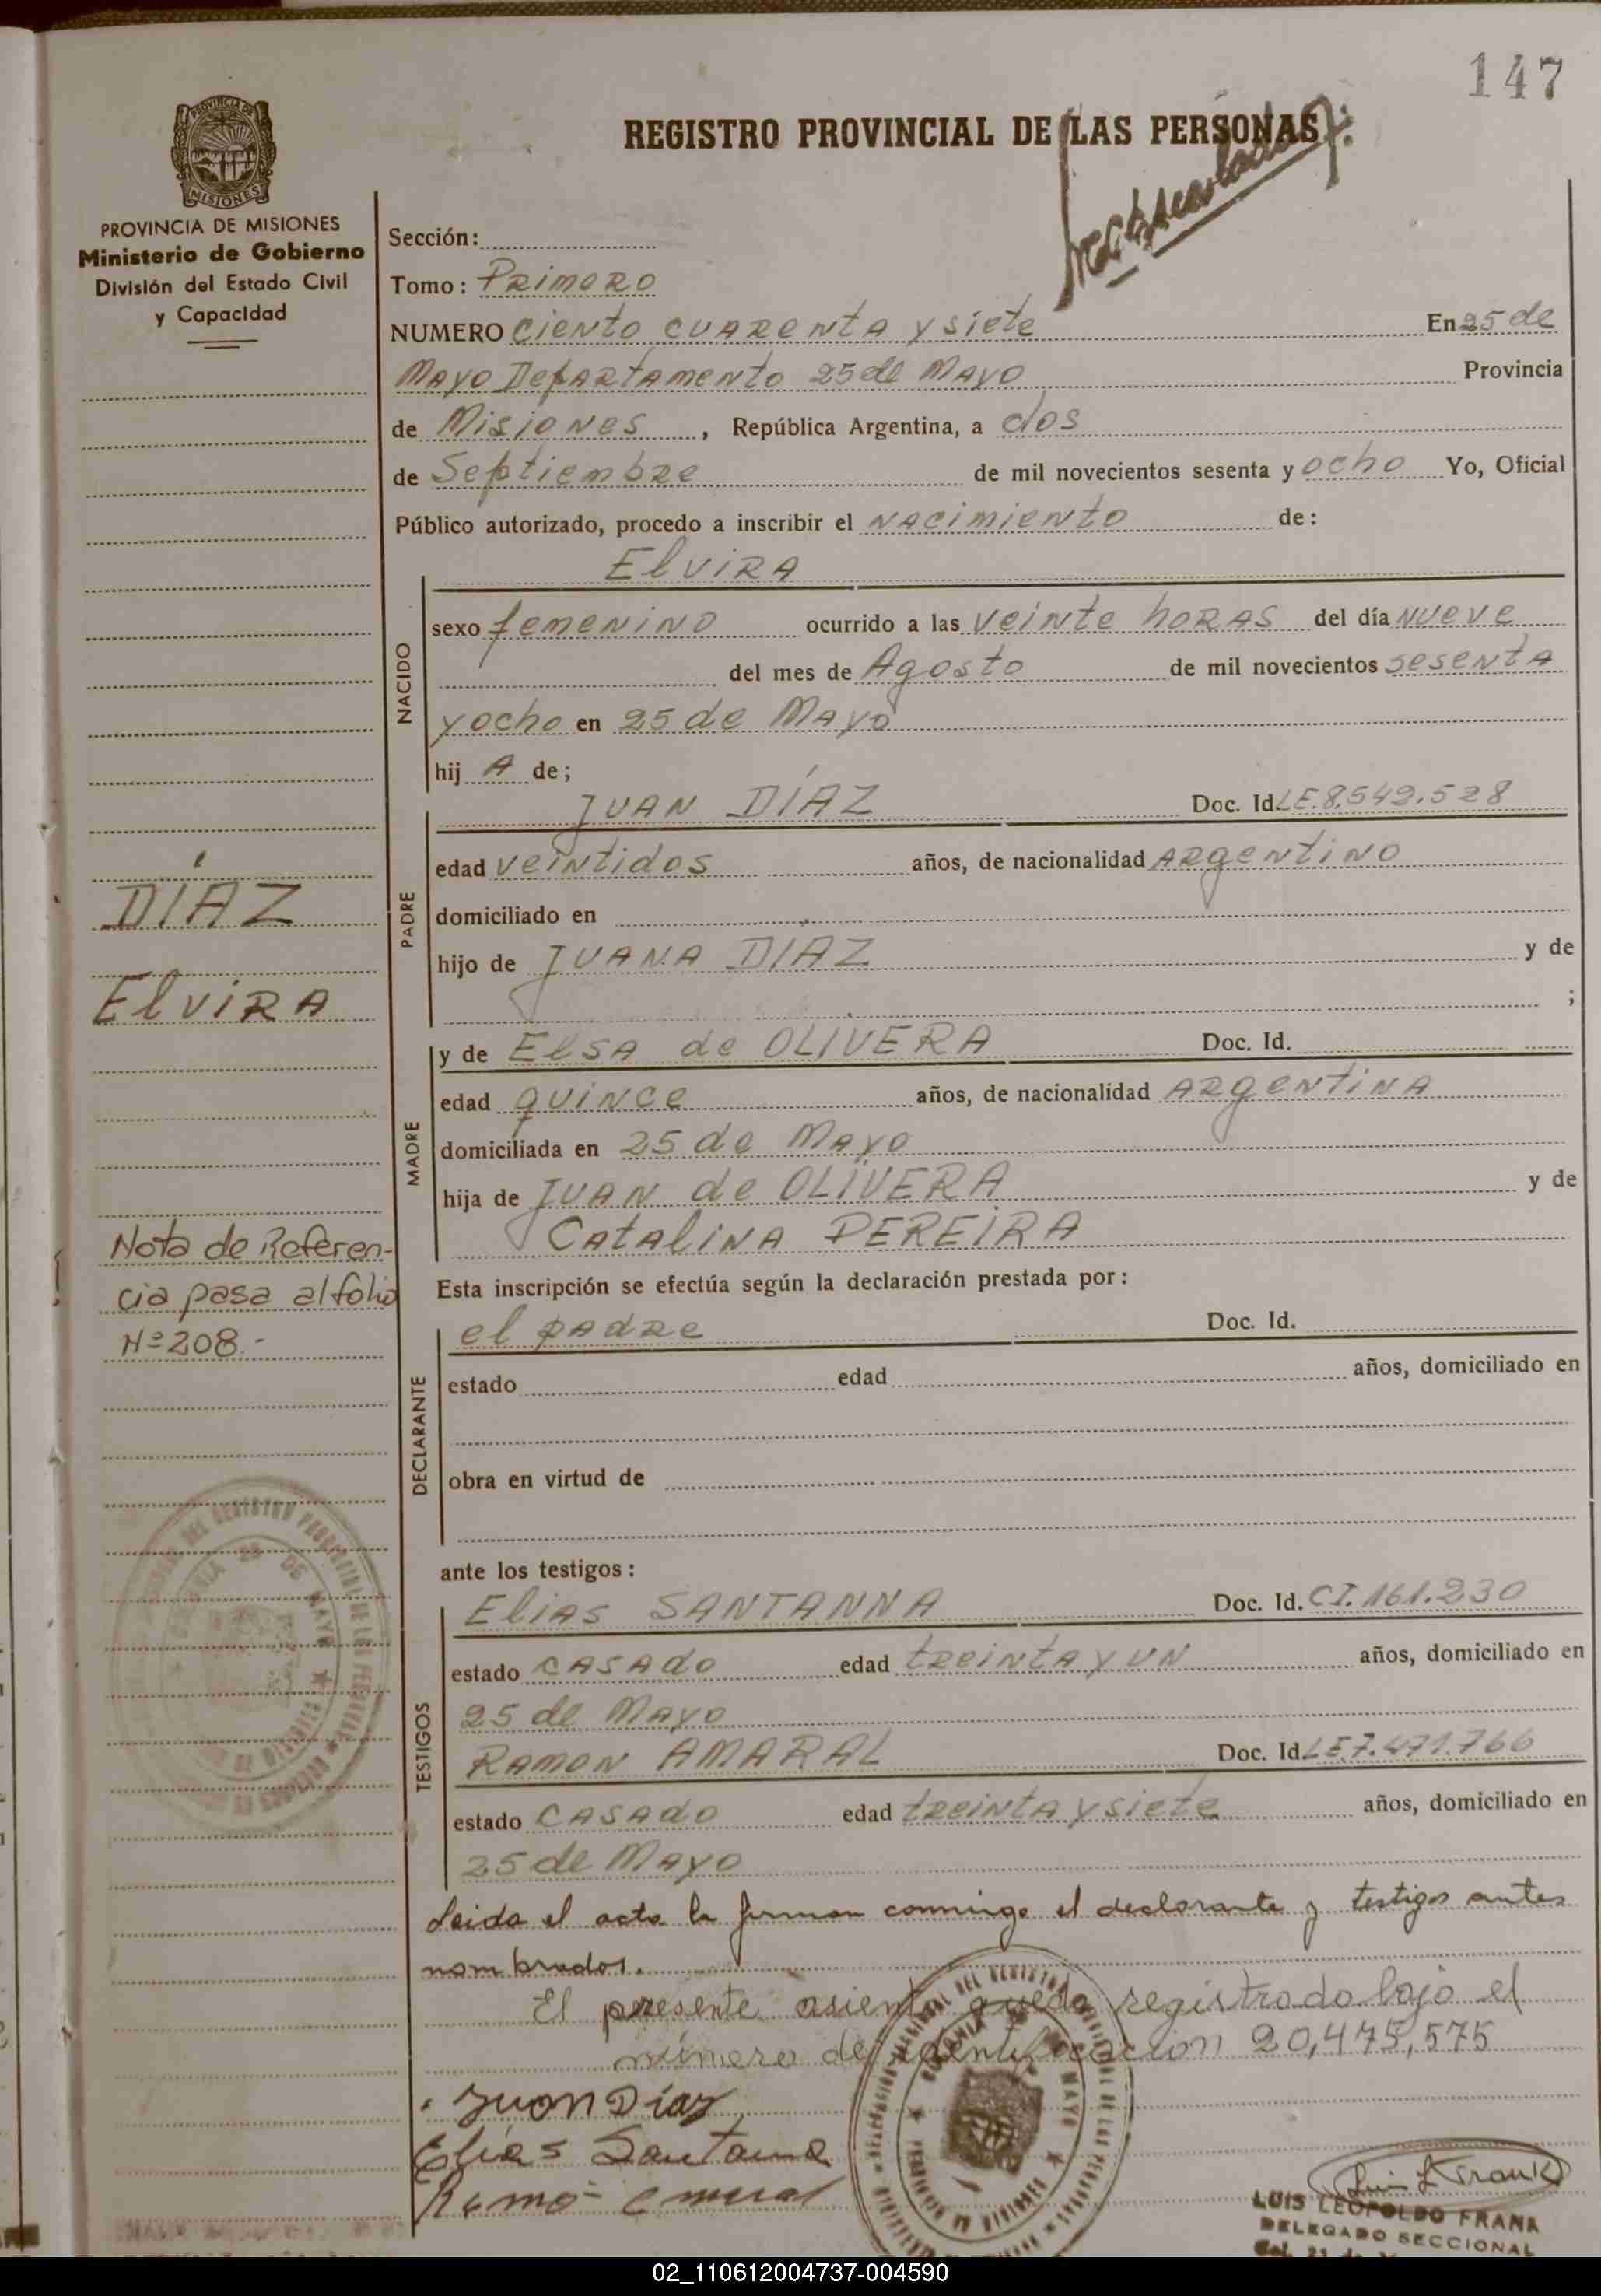 147
REGISTRO PROVINCIAL DE LAS PERSONAS
PROVINCIA DE MISIONES
Ministerio de Gobierno
División del Estado Civil
y Capacidad
Sección:
Tomo: Primero
NUMERO ciento cuarenta y siete En 25 de
Mayo Departamento 25 de Mayo Provincia
de Misiones, República Argentina, a dos
de Septiembre de mil novecientos sesenta y ocho Yo, Oficial
Público autorizado, procedo a inscribir el nacimiento de:
Elvira
NACIDO
sexo femenino ocurrido a las veinte horas del día nueve
del mes de Agosto de mil novecientos sesenta
y ocho en 25 de Mayo
hij A de;
JUAN DÍAZ Doc. Id. LE.8.542.528
PADRE
edad veintidos años, de nacionalidad Argentino
domiciliado en
hijo de JUANA DIAZ y de
;
DÍAZ
Elvira
MADRE
y de Elsa de OLIVERA Doc. Id.
edad quince años, de nacionalidad Argentina
domiciliada en 25 de Mayo
hija de JUAN de OLIVERA y de
Catalina PEREIRA
Nota de Referen-
cia pasa al folio
Nº 208.-
Esta inscripción se efectúa según la declaración prestada por:
DECLARANTE
el padre Doc. Id.
estado edad años, domiciliado en
obra en virtud de
ante los testigos:
TESTIGOS
Elias SANTANNA Doc. Id. CI.161.230
estado casado edad treinta y un años, domiciliado en
25 de Mayo
Ramon AMARAL Doc. Id. LE.7.471.766
estado casado edad treinta y siete años, domiciliado en
25 de Mayo
Leida el acta la firman conmigo el declarante y testigos antes
nombrados.
El presente asiento queda registrado bajo el
número de identificación 20,475,575
Juan Díaz
Elías Santana
LUIS LEOPOLDO FRANK
DELEGADO SECCIONAL
02_110612004737-004590